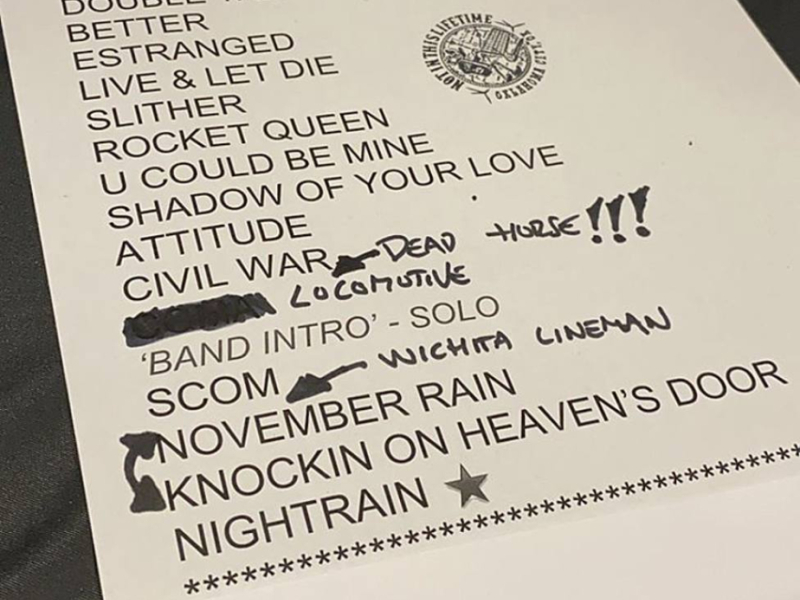 DOUBLE
BETTER
ESTRANGED
LIVE & LET DIE
SLITHER
ROCKET QUEEN
U COULD BE MINE
SHADOW OF YOUR LOVE
ATTITUDE
CIVIL WAR DEAD HORSE!!!
LOCOMOTIVE
'BAND INTRO' - SOLO
SCOM WICHITA LINEMAN
NOVEMBER RAIN
KNOCKIN ON HEAVEN'S DOOR
NIGHTRAIN ★
**************************************
NOT IN THIS LIFETIME
OKLAHOMA CITY, OK